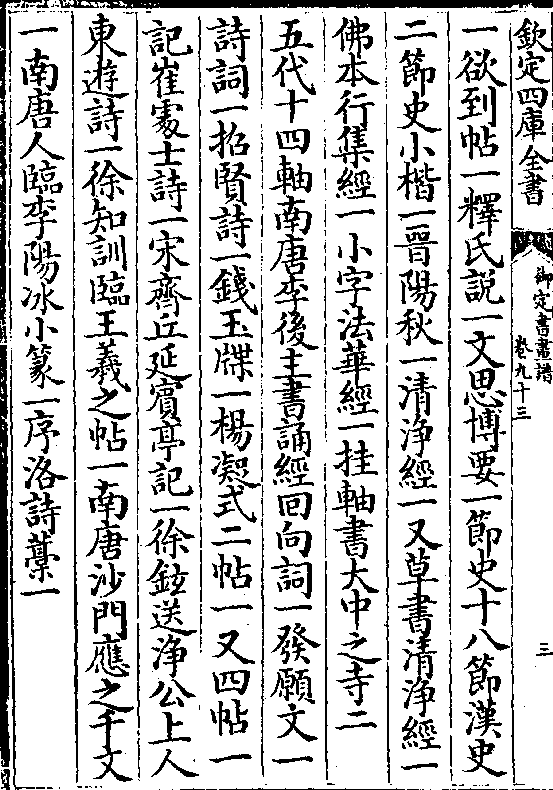 欽定四庫全書
御定書畫譜
卷九十三
三
一欲到帖一釋氏說一文思博要一節史十八節漢史
二節史小楷一晉陽秋一清浄經一又草書清浄經一
佛本行集經一小字法華經一挂軸書大中之寺二
五代十四軸南唐李後主書誦經回向詞一發願文一
詩詞一招賢詩一錢玉牒一楊凝式二帖一又四帖一
記崔處士詩一宋齊丘延賓亭記一徐鉉送浄公上人
東遊詩一徐知訓臨王羲之帖一南唐沙門應之千文
一南唐人臨李陽冰小篆一序洛詩藁一